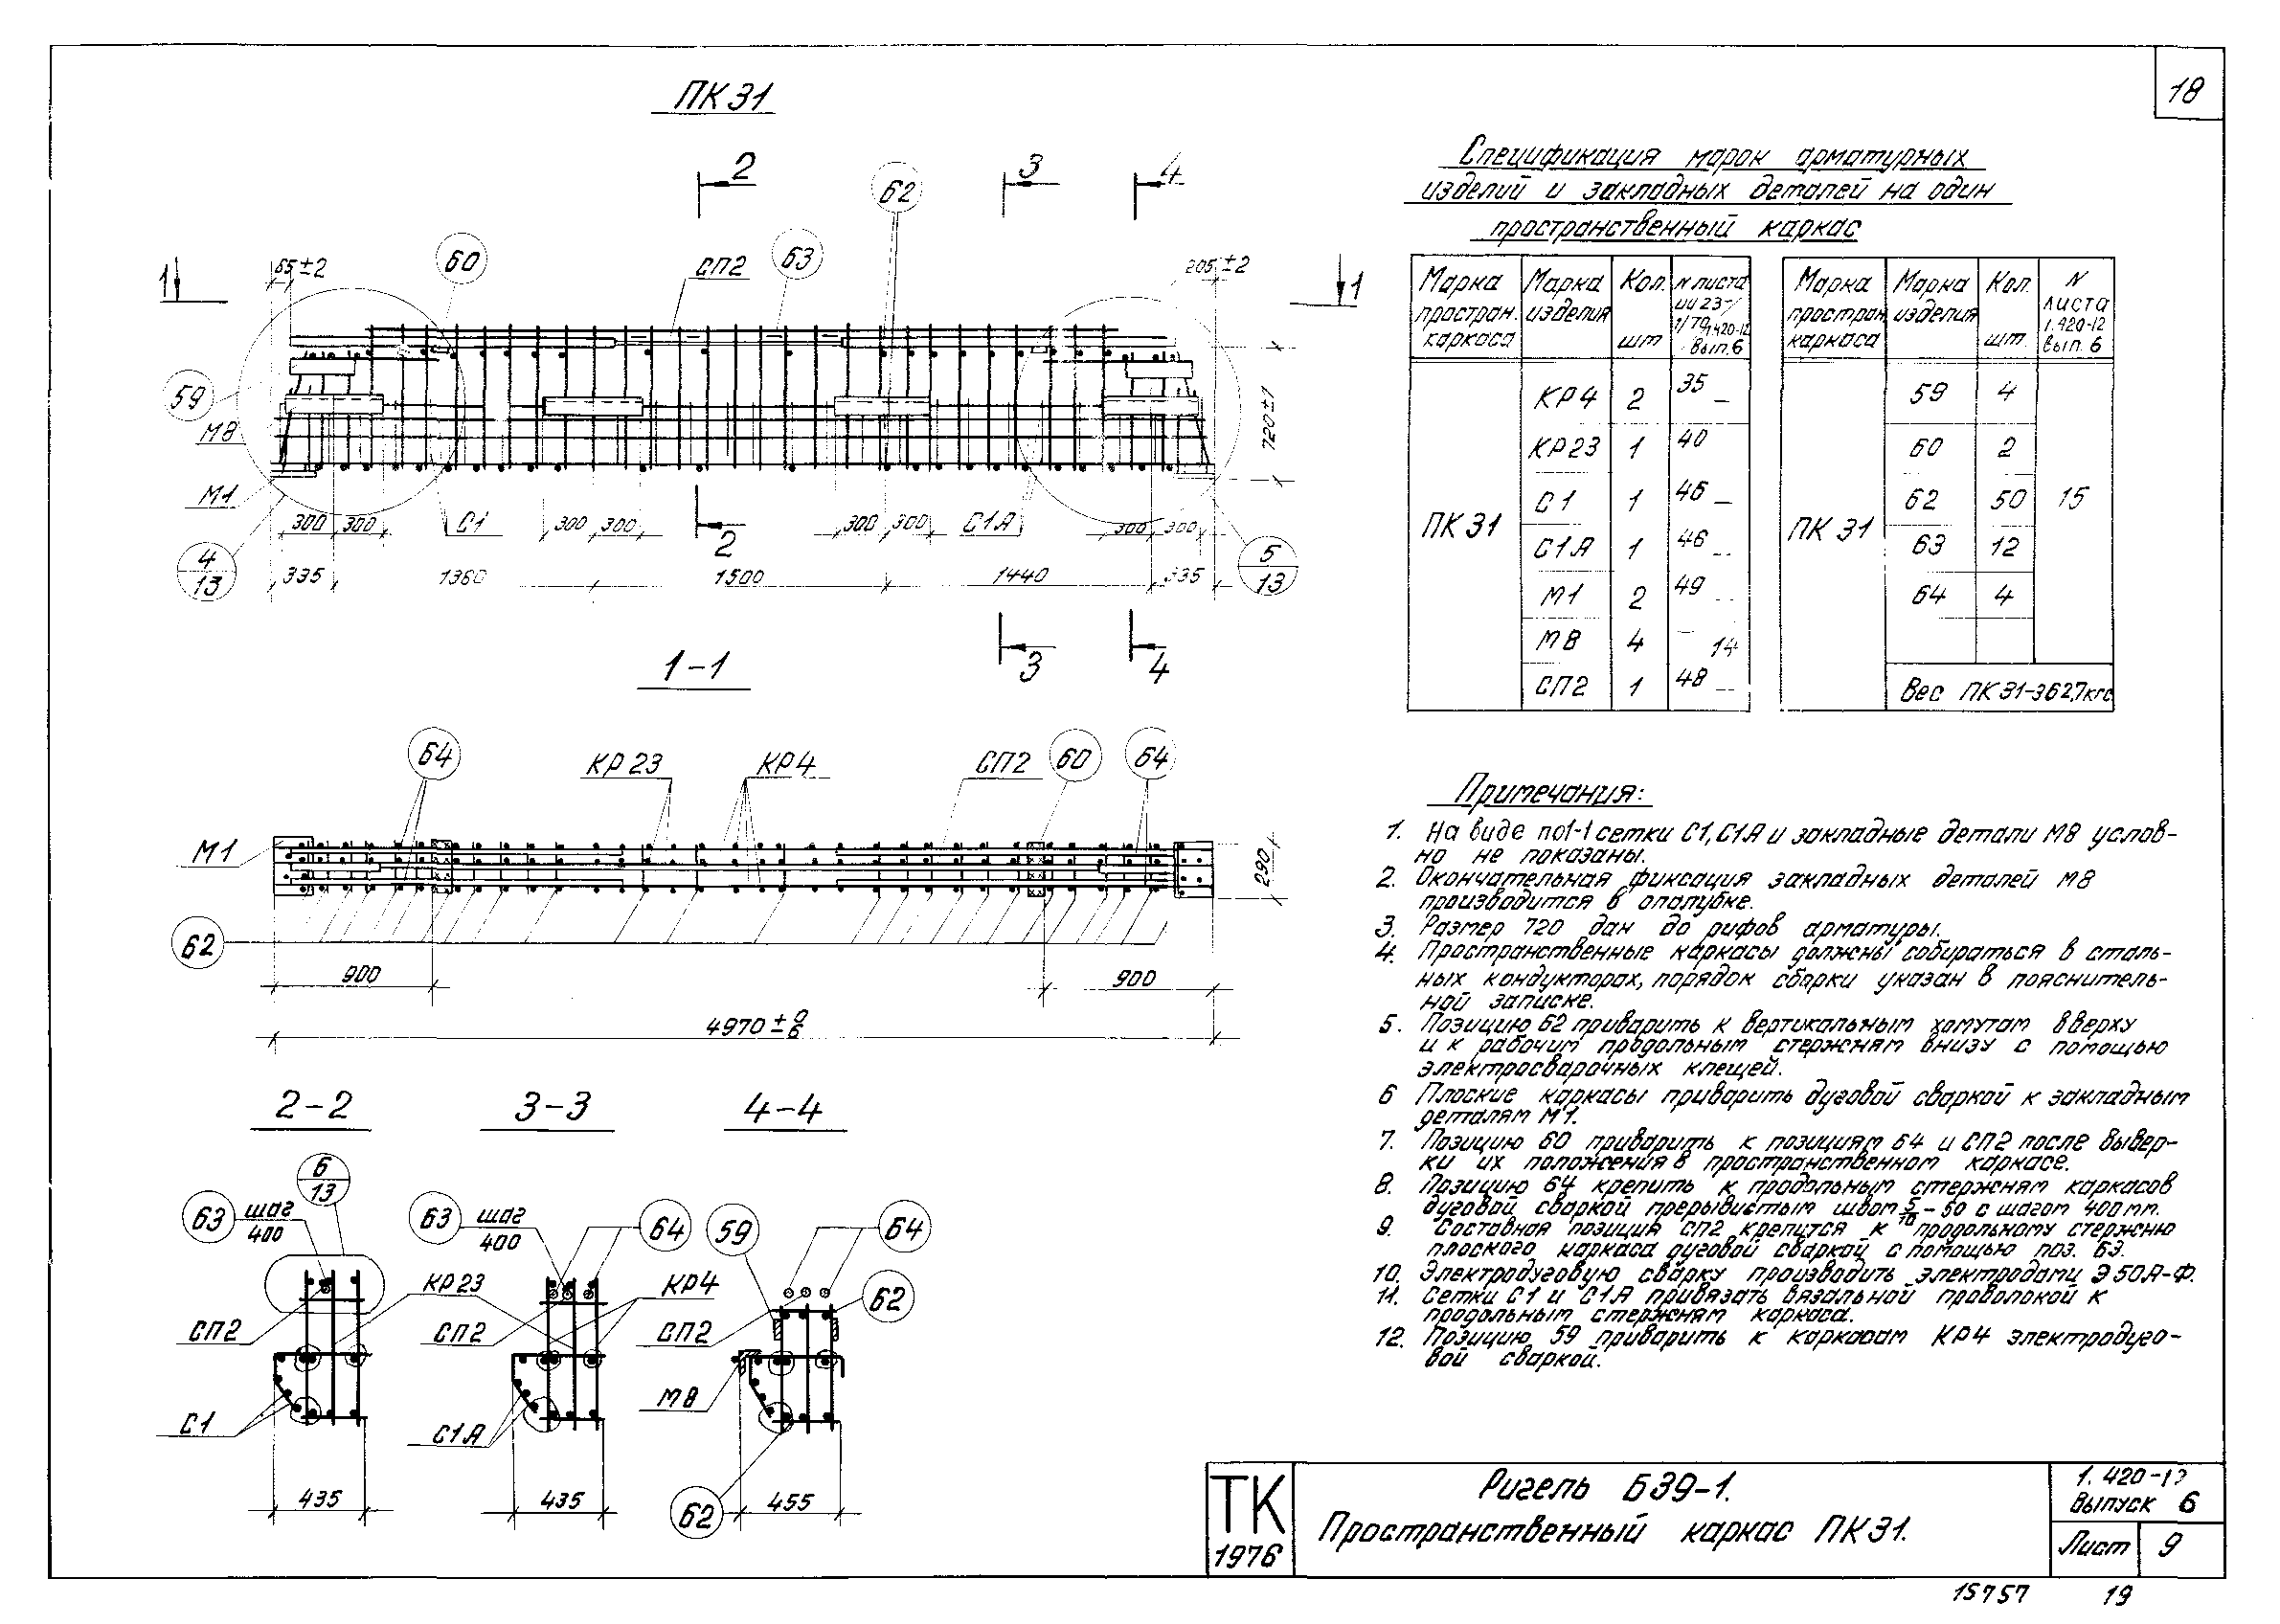 18
ПК 31
2
3
4
62
60
СП2
63
65±2
205±2
1
1
59
М8
М1
720±1
300 300
С1
300 300
2
300 300
С1А
300 300
4
13
5
13
335
1360
1500
1440
335
3
4
1-1
64
КР 23
КР4
СП2
60
64
М1
290
62
900
900
4970 ± 0 6
2-2
3-3
4-4
6
13
63
шаг
400
СП2
КР23
С1
435
63
шаг
400
64
КР4
СП2
С1А
435
59
64
62
СП2
М8
62
455
Спецификация марок арматурных
изделий и закладных деталей на один
пространственный каркас
Марка простран. каркаса
Марка изделия
Кол. шт
N листа ИИ 23-/ 1/70 1.420-12 Вып. 6
ПК 31
КР4 2 35 —
КР23 1 40
С1 1 46 —
С1А 1 46 —
М1 2 49 --
М8 4 — 14
СП2 1 48 —
Марка простран каркаса
Марка изделия
Кол. шт.
N листа 1.420-12 Вып. 6
ПК 31
59 4
60 2
62 50 15
63 12
64 4
Вес ПК 31-362,7кгс
Примечания:
1. На виде по1-1 сетки С1, С1А и закладные детали М8 услов-
но не показаны.
2. Окончательная фиксация закладных деталей М8
производится в опалубке.
3. Размер 720 дан до рифов арматуры.
4. Пространственные каркасы должны собираться в сталь-
ных кондукторах, порядок сборки указан в пояснитель-
ной записке.
5. Позицию 62 приварить к вертикальным хомутам вверху
и к рабочим продольным стержням внизу с помощью
электросварочных клещей.
6 Плоские каркасы приварить дуговой сваркой к закладным
деталям М1.
7. Позицию 60 приварить к позициям 64 и СП2 после вывер-
ки их положения в пространственном каркасе.
8. Позицию 64 крепить к продольным стержням каркасов
дуговой сваркой прерывистым швом 5/10 - 50 с шагом 400мм.
9. Составная позиция СП2 крепится к продольному стержню
плоского каркаса дуговой сваркой с помощью поз. 63.
10. Электродуговую сварку производить электродами Э 50А-Ф.
11. Сетки С1 и С1А привязать вязальной проволокой к
продольным стержням каркаса.
12. Позицию 59 приварить к каркасам КР4 электродуго-
вой сваркой.
ТК
1976
Ригель Б39-1.
Пространственный каркас ПК31.
1.420-12
Выпуск 6
Лист 9
15757 19